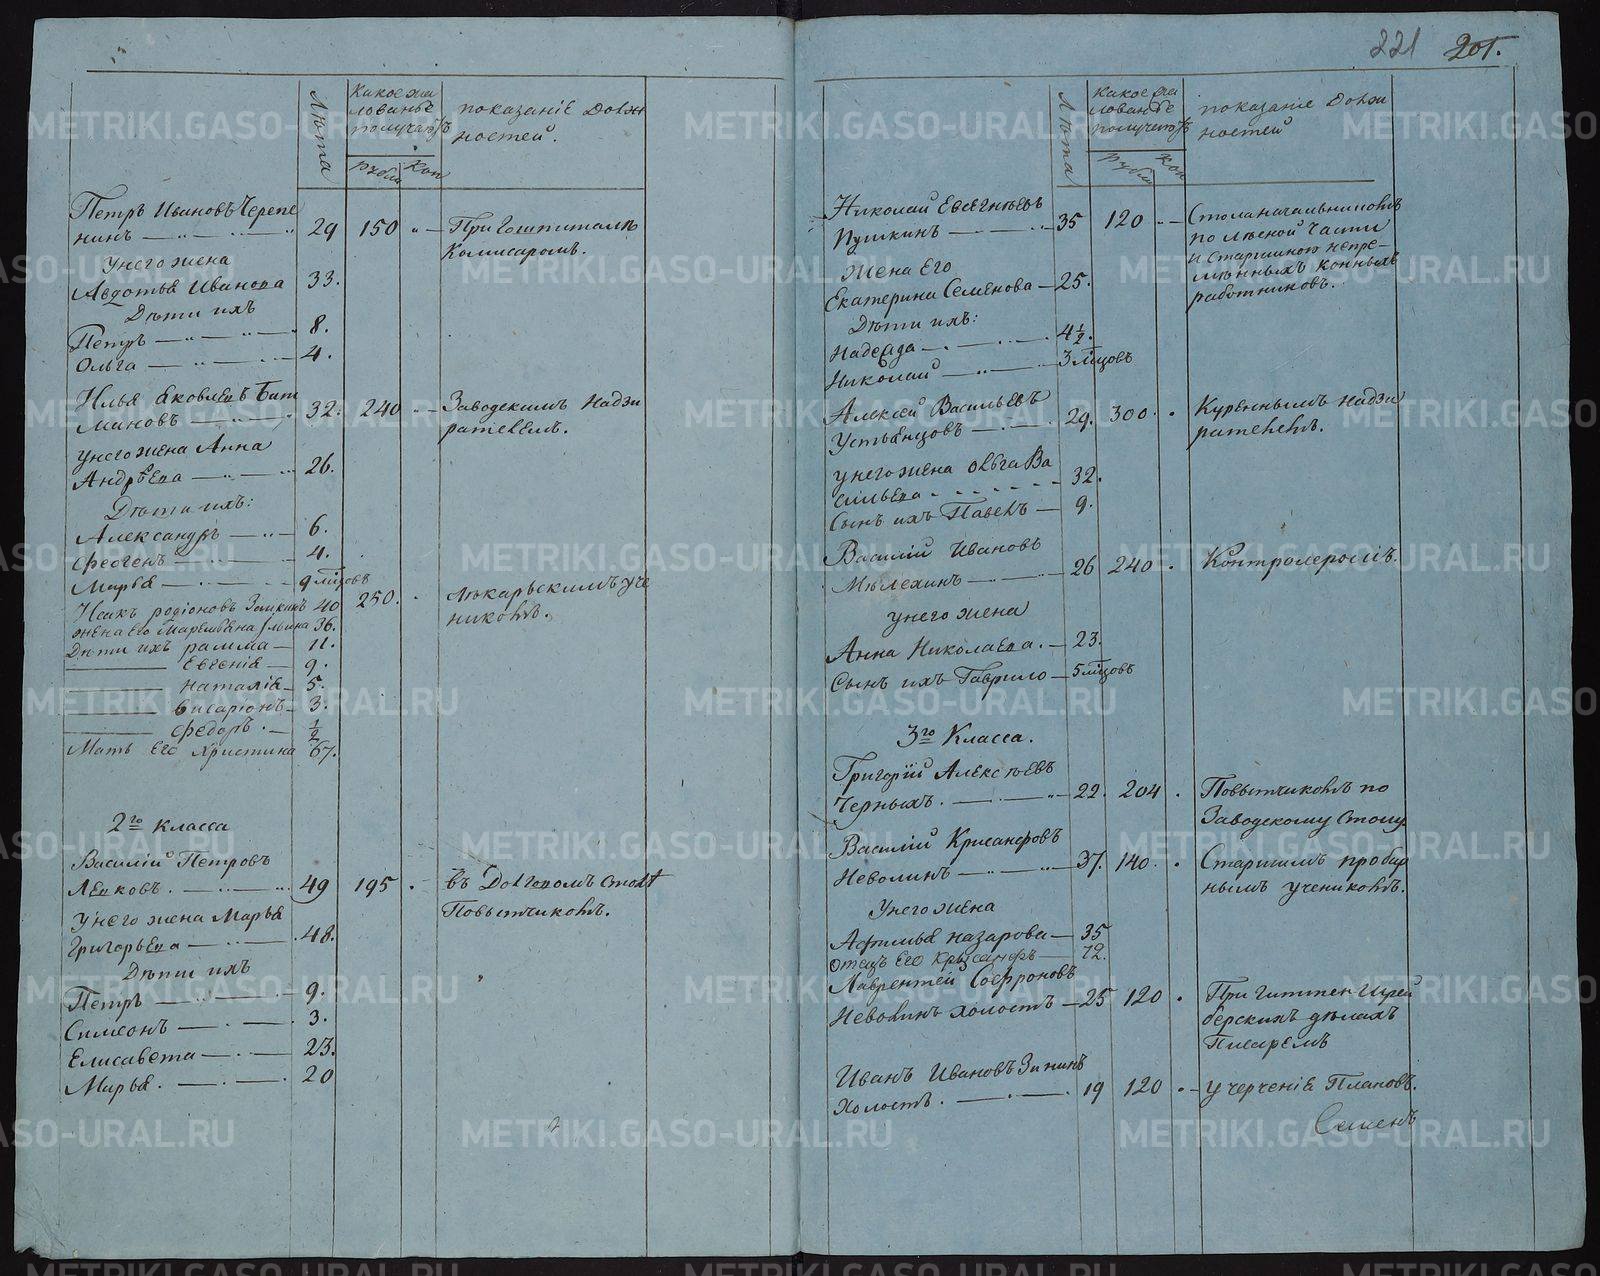 Лѣта
Какое жа
лованье
получаютъ
Рубли Коп
показаніе Долж
ностей.
Петръ Ивановъ Черепе
нинъ 29 150 При Гошпиталѣ
Комисаромъ.
У него жена
Авдотья Иванова 33.
Дѣти ихъ
Петръ 8.
Ольга 4.
Илья Яковлевъ Бит
миновъ 32. 240 Заводскимъ Надзи
рателемъ.
у него жена Анна
Андрѣева 26.
Дѣти ихъ:
Александръ 6.
Феогенъ 4.
Марья 9 мѣцовъ
Исакъ родіоновъ 40 250. лѣкарьскимъ уче
никомъ.
жена его 36.
Дѣти ихъ раиша 11.
Евгенія 9.
Наталія 5.
Висаріонъ 3.
Федоръ. 1/2
Мать Его Христина 67.
2го Класса
Василій Петровъ
Левковъ. 49 195 въ Долговомъ столѣ
Повытчикомъ.
У него жена Марья
Григорьева 48.
Дѣти ихъ
Петръ 9.
Симеонъ 3.
Елисавета 23.
Марья. 20
221 201.
Лѣта
Какое жа
лованье
получаютъ
Рубли Коп
показаніе Долж
ностей
Николай Евгеньевъ
Пушкинъ 35 120 Столаначальникомъ
по лѣсной части
и Старшиною непре-
мѣнныхъ конныхъ
работниковъ.
Жена Его
Екатерина Семенова 25.
Дѣти ихъ:
Надежда 4 1/2.
Николай 3 мѣцовъ
Алексей Васильевъ
Устьянцовъ 29. 300. Куреннымъ надзи
рателемъ.
у него жена Ольга Ва
сильева 32.
Сынъ ихъ Павелъ 9.
Василій Ивановъ
Мѣлехинъ 26 240 Контролеромъ.
у него жена
Анна Николаева. 23.
Сынъ ихъ Гаврило 5 мѣцовъ
3го Класса.
Григорій Алексѣевъ
Черныхъ. 22. 204 Повытчикомъ по
Заводскому Столу
Василій Крисанфовъ
Неволинъ 37. 140. Старшимъ пробир
нымъ ученикомъ.
У него жена
Афимья назарова 35
отецъ Его Крысанфъ 72.
Лаврентій Софроновъ
Неволинъ холостъ 25 120 При Гиттен Шрей
берскихъ дѣлахъ
Писаремъ
Иванъ Ивановъ Зининъ
Холостъ. 19 120 у черченія Плановъ.
Семенъ
METRIKI.GASO-URAL.RU